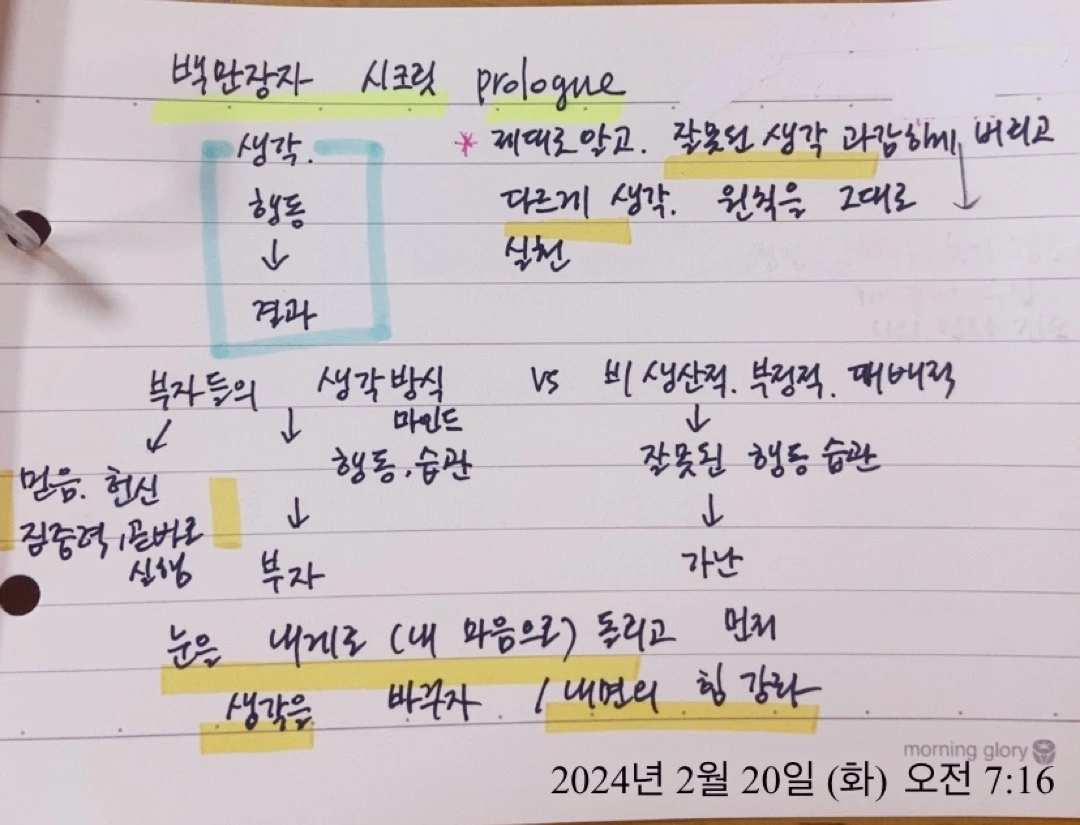 백만장자 시크릿 prologue
생각.
행동
↓
결과
* 제대로 알고. 잘못된 생각 과감하게 버리고
다르게 생각. 원칙을 그대로
실천
부자들의 생각방식 vs 비생산적. 부정적. 패배적
마인드
행동, 습관
잘못된 행동 습관
믿음. 헌신
집중력, 곧바로
실행
부자
가난
눈을 내게로 (내 마음으로) 돌리고 먼저
생각을 바꾸자 / 내면의 힘 강화
morning glory
2024년 2월 20일 (화) 오전 7:16